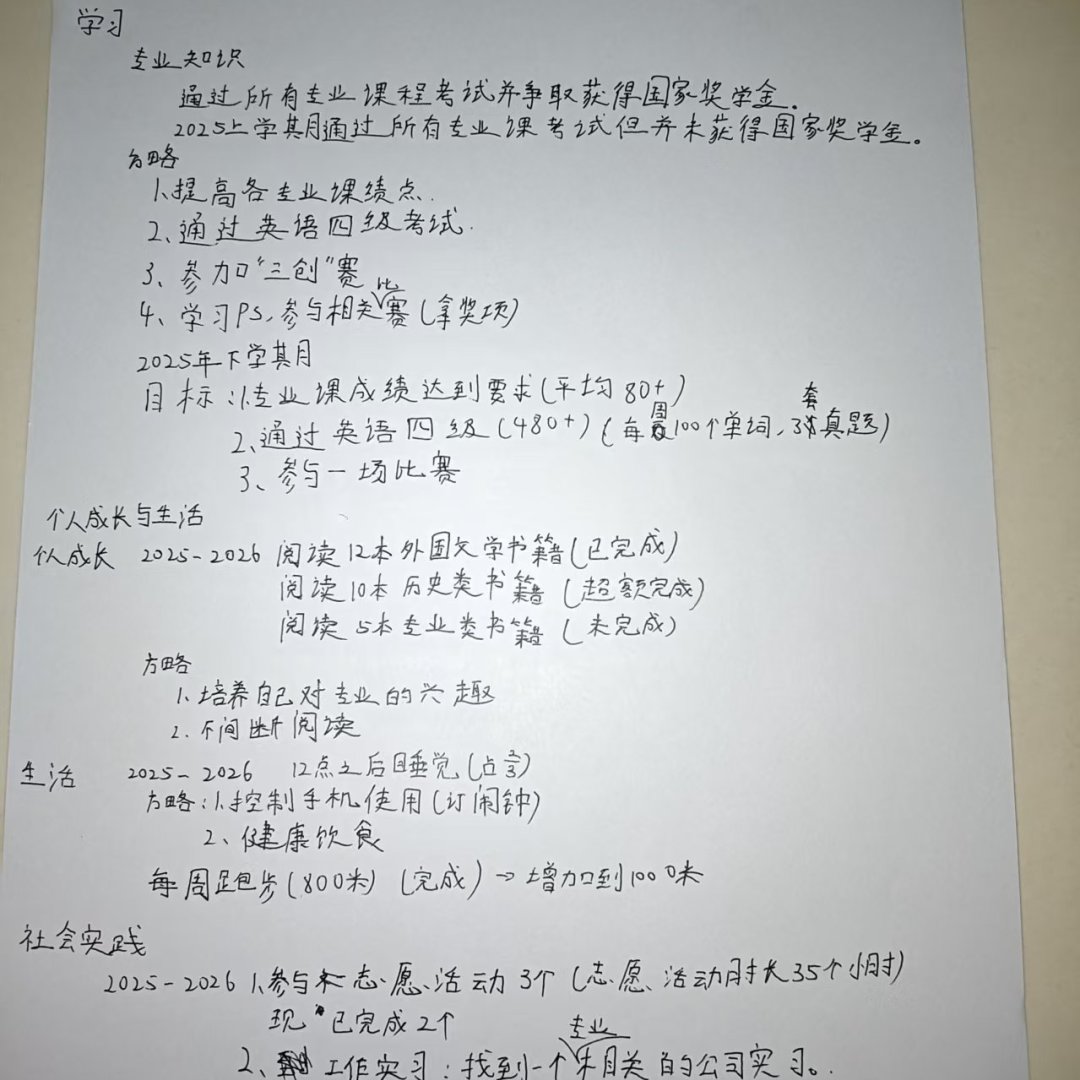 学习
专业知识
通过所有专业课程考试并争取获得国家奖学金。
2025上学期通过所有专业课考试但并未获得国家奖学金。
方略
1、提高各专业课绩点.
2、通过英语四级考试.
3、参加"三创"赛
4、学习PS,参与相关比赛(拿奖项)
2025年下学期
目标:1.专业课成绩达到要求(平均80+)
2、通过英语四级(480+)(每周100个单词,3套真题)
3、参与一场比赛
个人成长与生活
个人成长 2025-2026 阅读12本外国文学书籍(已完成)
阅读10本历史类书籍(超额完成)
阅读5本专业类书籍(未完成)
方略
1.培养自己对专业的兴趣
2.不间断阅读
生活 2025-2026 12点之后睡觉(占2/3)
方略:1.控制手机使用(订闹钟)
2、健康饮食
每周跑步(800米)(完成)→增加到1000米
社会实践
2025-2026 1、参与志愿活动3个(志愿活动时长35个小时)
现已完成2个
2、工作实习:找到一个专业相关的公司实习。